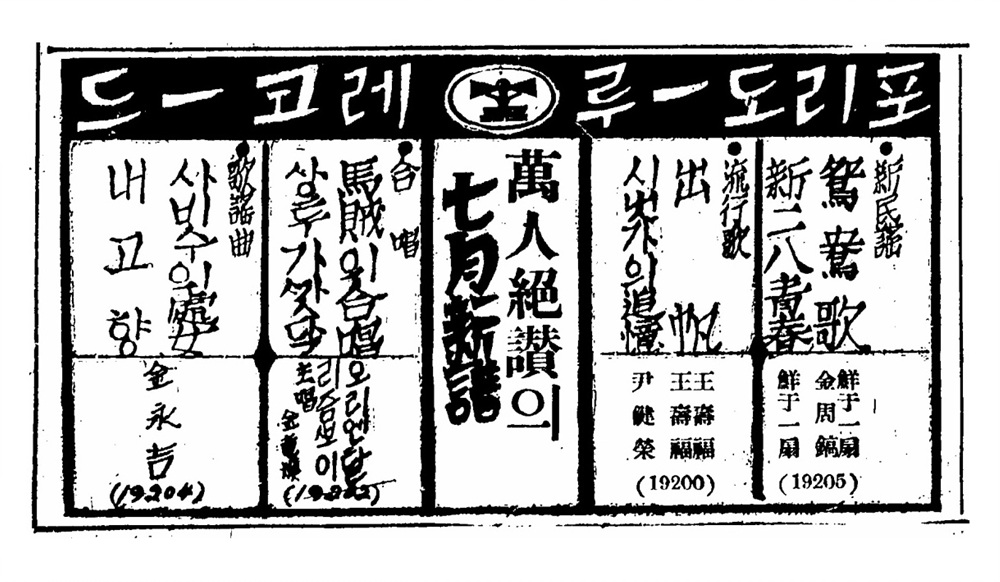 포리도ー루 레고ー드
新民謠
鴛鴦歌
新二八靑春
鮮于一扇
金周鎬
鮮于一扇
(19205)
流行歌
出帆
시냇가의追憶
王壽福
王壽福
尹健榮
(19200)
萬人絕讚의
七月新譜
合唱
馬賊의合唱
오리엔탈
리즘뽀이
主唱
(19202)
歌謠曲
사비수의處女
내고향
金永吉
(19204)